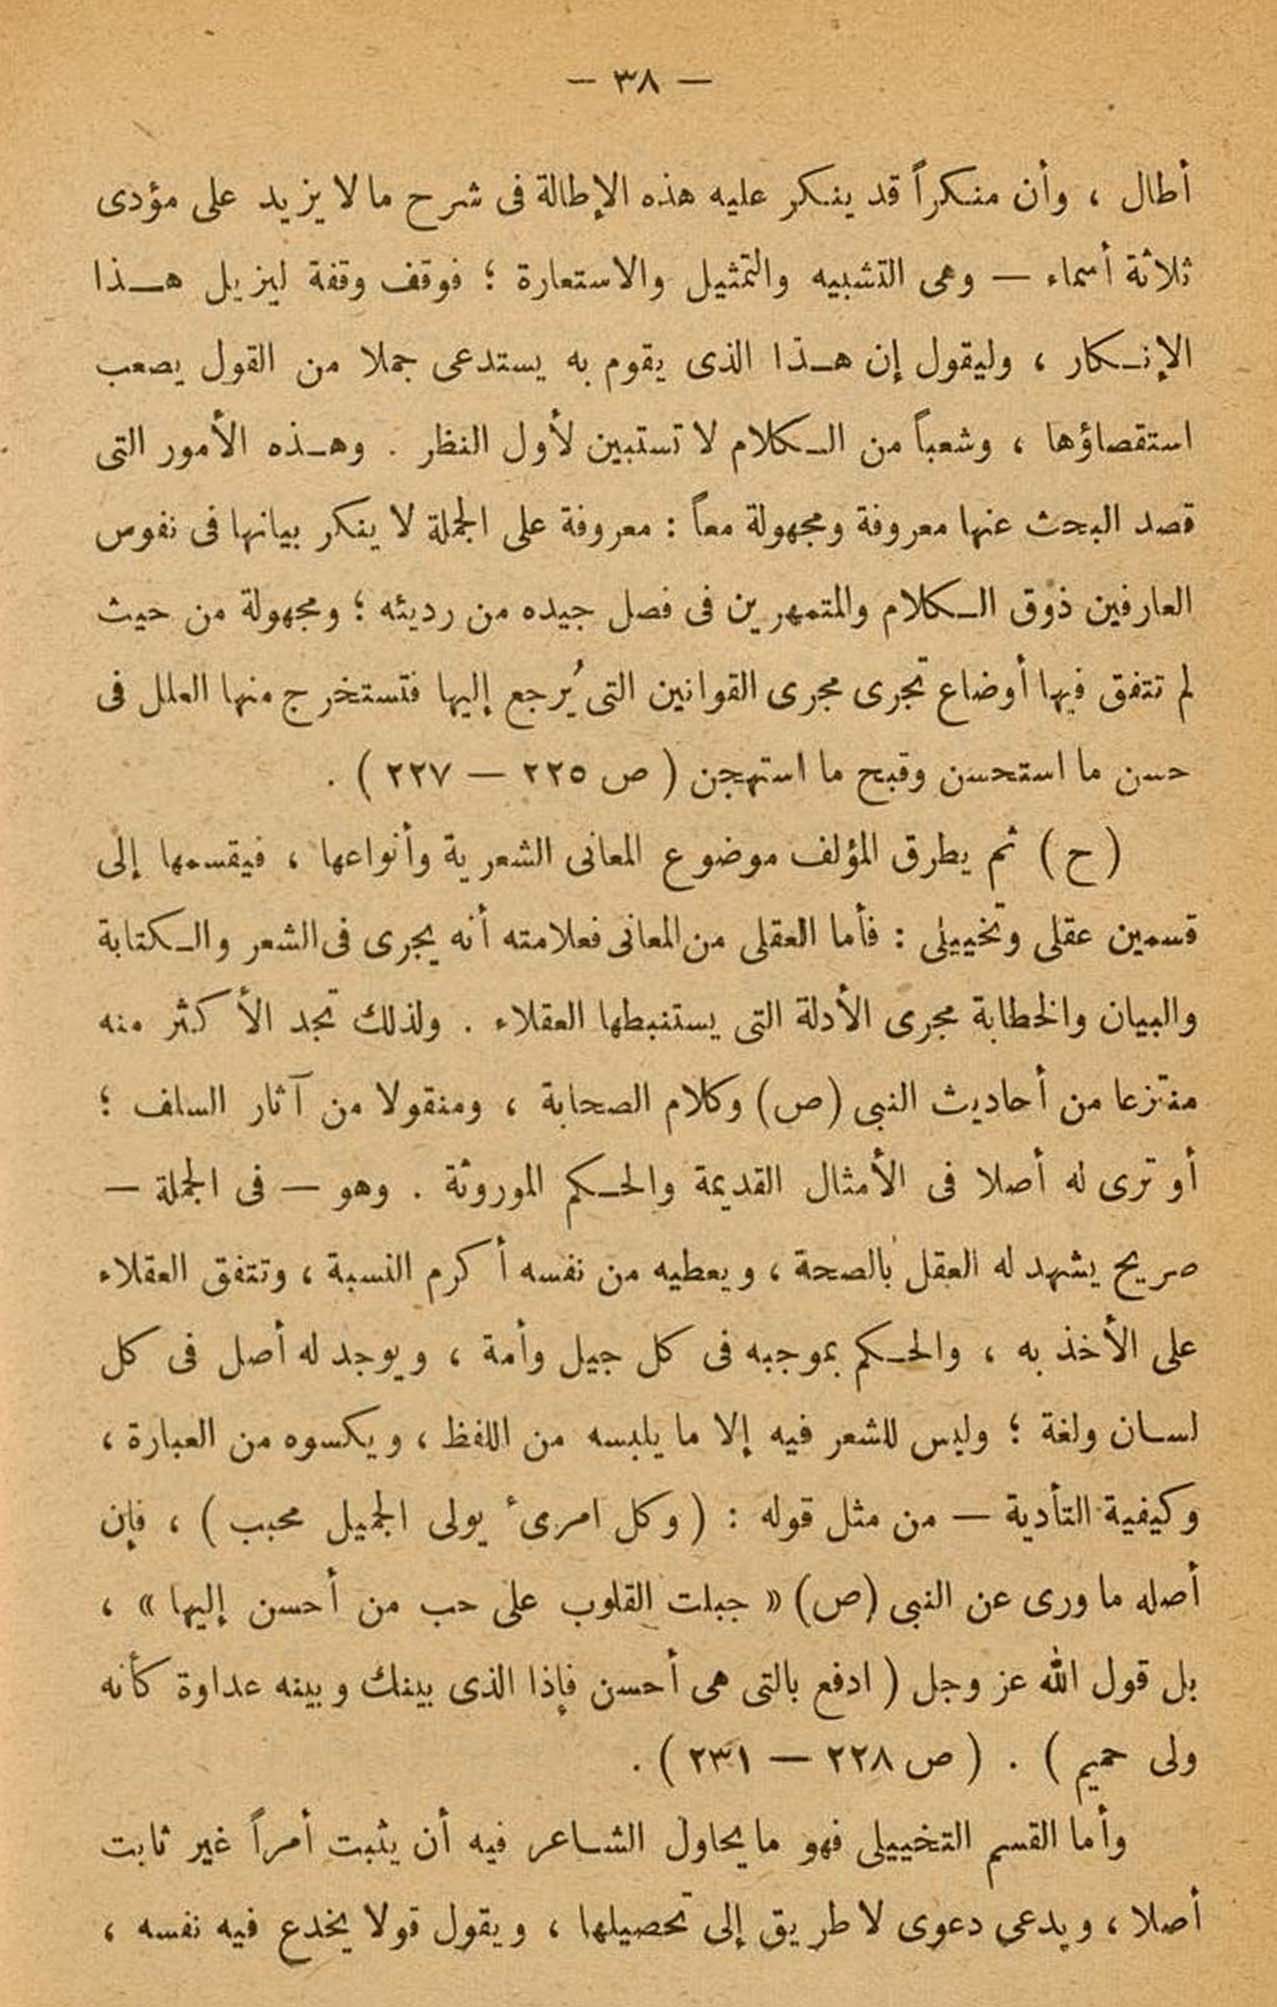 — ٣٨ —
أطال ، وأن منكراً قد ينكر عليه هذه الإطالة فى شرح ما لا يزيد على مؤدى
ثلاثة أسماء — وهى التشبيه والتمثيل والاستعارة ؛ فوقف وقفة ليزيل هذا
الإنكار ، وليقول إن هذا الذى يقوم به يستدعى جملا من القول يصعب
استقصاؤها ، وشعباً من الكلام لا تستبين لأول النظر . وهذه الأمور التى
قصد البحث عنها معروفة ومجهولة معاً : معروفة على الجملة لا ينكر بيانها فى نفوس
العارفين ذوق الكلام والمتمهرين فى فصل جيده من رديئه ؛ ومجهولة من حيث
لم تتفق فيها أوضاع تجرى مجرى القوانين التى يُرجع إليها فتستخرج منها العلل فى
حسن ما استحسن وقبح ما استهجن ( ص ٢٢٥ — ٢٢٧ ) .
( ح ) ثم يطرق المؤلف موضوع المعانى الشعرية وأنواعها ، فيقسمها إلى
قسمين عقلى وتخييلى : فأما العقلى من المعانى فعلامته أنه يجرى فى الشعر والكتابة
والبيان والخطابة مجرى الأدلة التى يستنبطها العقلاء . ولذلك تجد الأكثر منه
منتزعا من أحاديث النبى (ص) وكلام الصحابة ، ومنقولا من آثار السلف ؛
أو ترى له أصلا فى الأمثال القديمة والحكم الموروثة . وهو — فى الجملة —
صريح يشهد له العقل بالصحة ، ويعطيه من نفسه أكرم النسبة ، وتتفق العقلاء
على الأخذ به ، والحكم بموجبه فى كل جيل وأمة ، ويوجد له أصل فى كل
لسان ولغة ؛ وليس للشعر فيه إلا ما يلبسه من اللفظ ، ويكسوه من العبارة ،
وكيفية التأدية — من مثل قوله : ( وكل امرىء يولى الجميل محبب ) ، فإن
أصله ما ورى عن النبى (ص) « جبلت القلوب على حب من أحسن إليها » ،
بل قول الله عز وجل ( ادفع بالتى هى أحسن فإذا الذى بينك وبينه عداوة كأنه
ولى حميم ) . ( ص ٢٢٨ — ٢٣١ ) .
وأما القسم التخييلى فهو ما يحاول الشاعر فيه أن يثبت أمراً غير ثابت
أصلا ، ويدعى دعوى لا طريق إلى تحصيلها ، ويقول قولا يخدع فيه نفسه ،